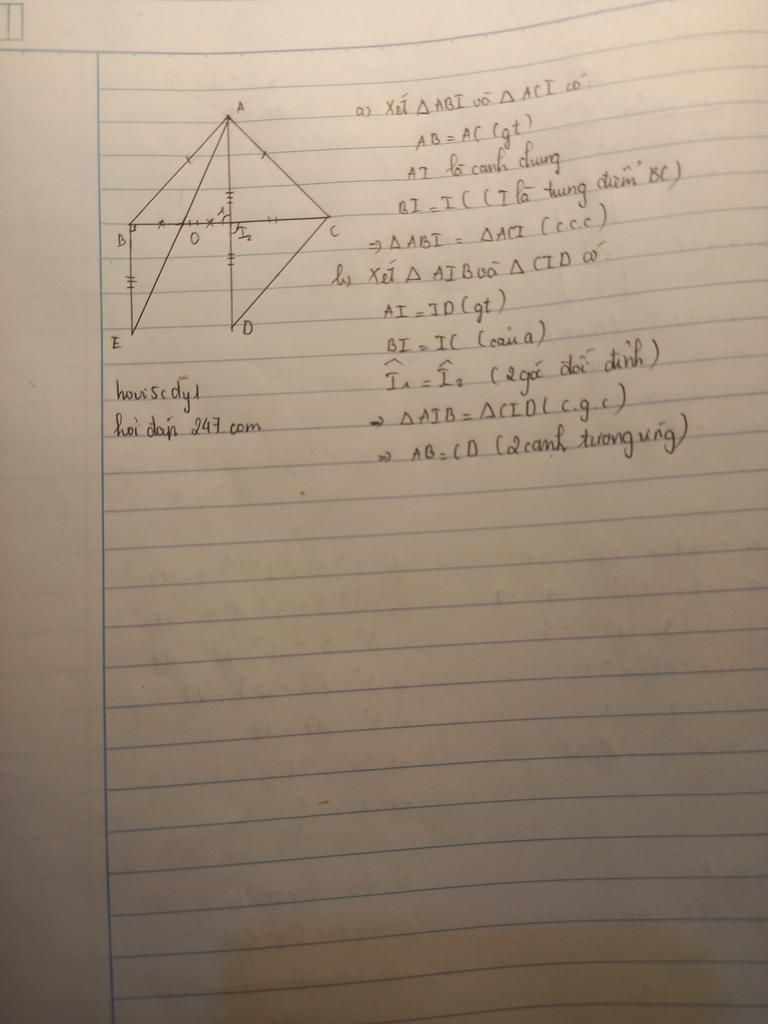 A
B
O
1
I2
C
E
D
hoviscdys
hoi đáp 247.com
a) Xét △ABI và △ACI có:
AB = AC (gt)
AI là cạnh chung
BI = IC (I là trung điểm BC)
⇒ △ABI = △ACI (c.c.c)
b) Xét △AIB và △CID có:
AI = ID (gt)
BI = IC (câu a)
Î1 = Î2 (2 góc đối đỉnh)
⇒ △AIB = △CID (c.g.c)
⇒ AB = CD (2 cạnh tương ứng)